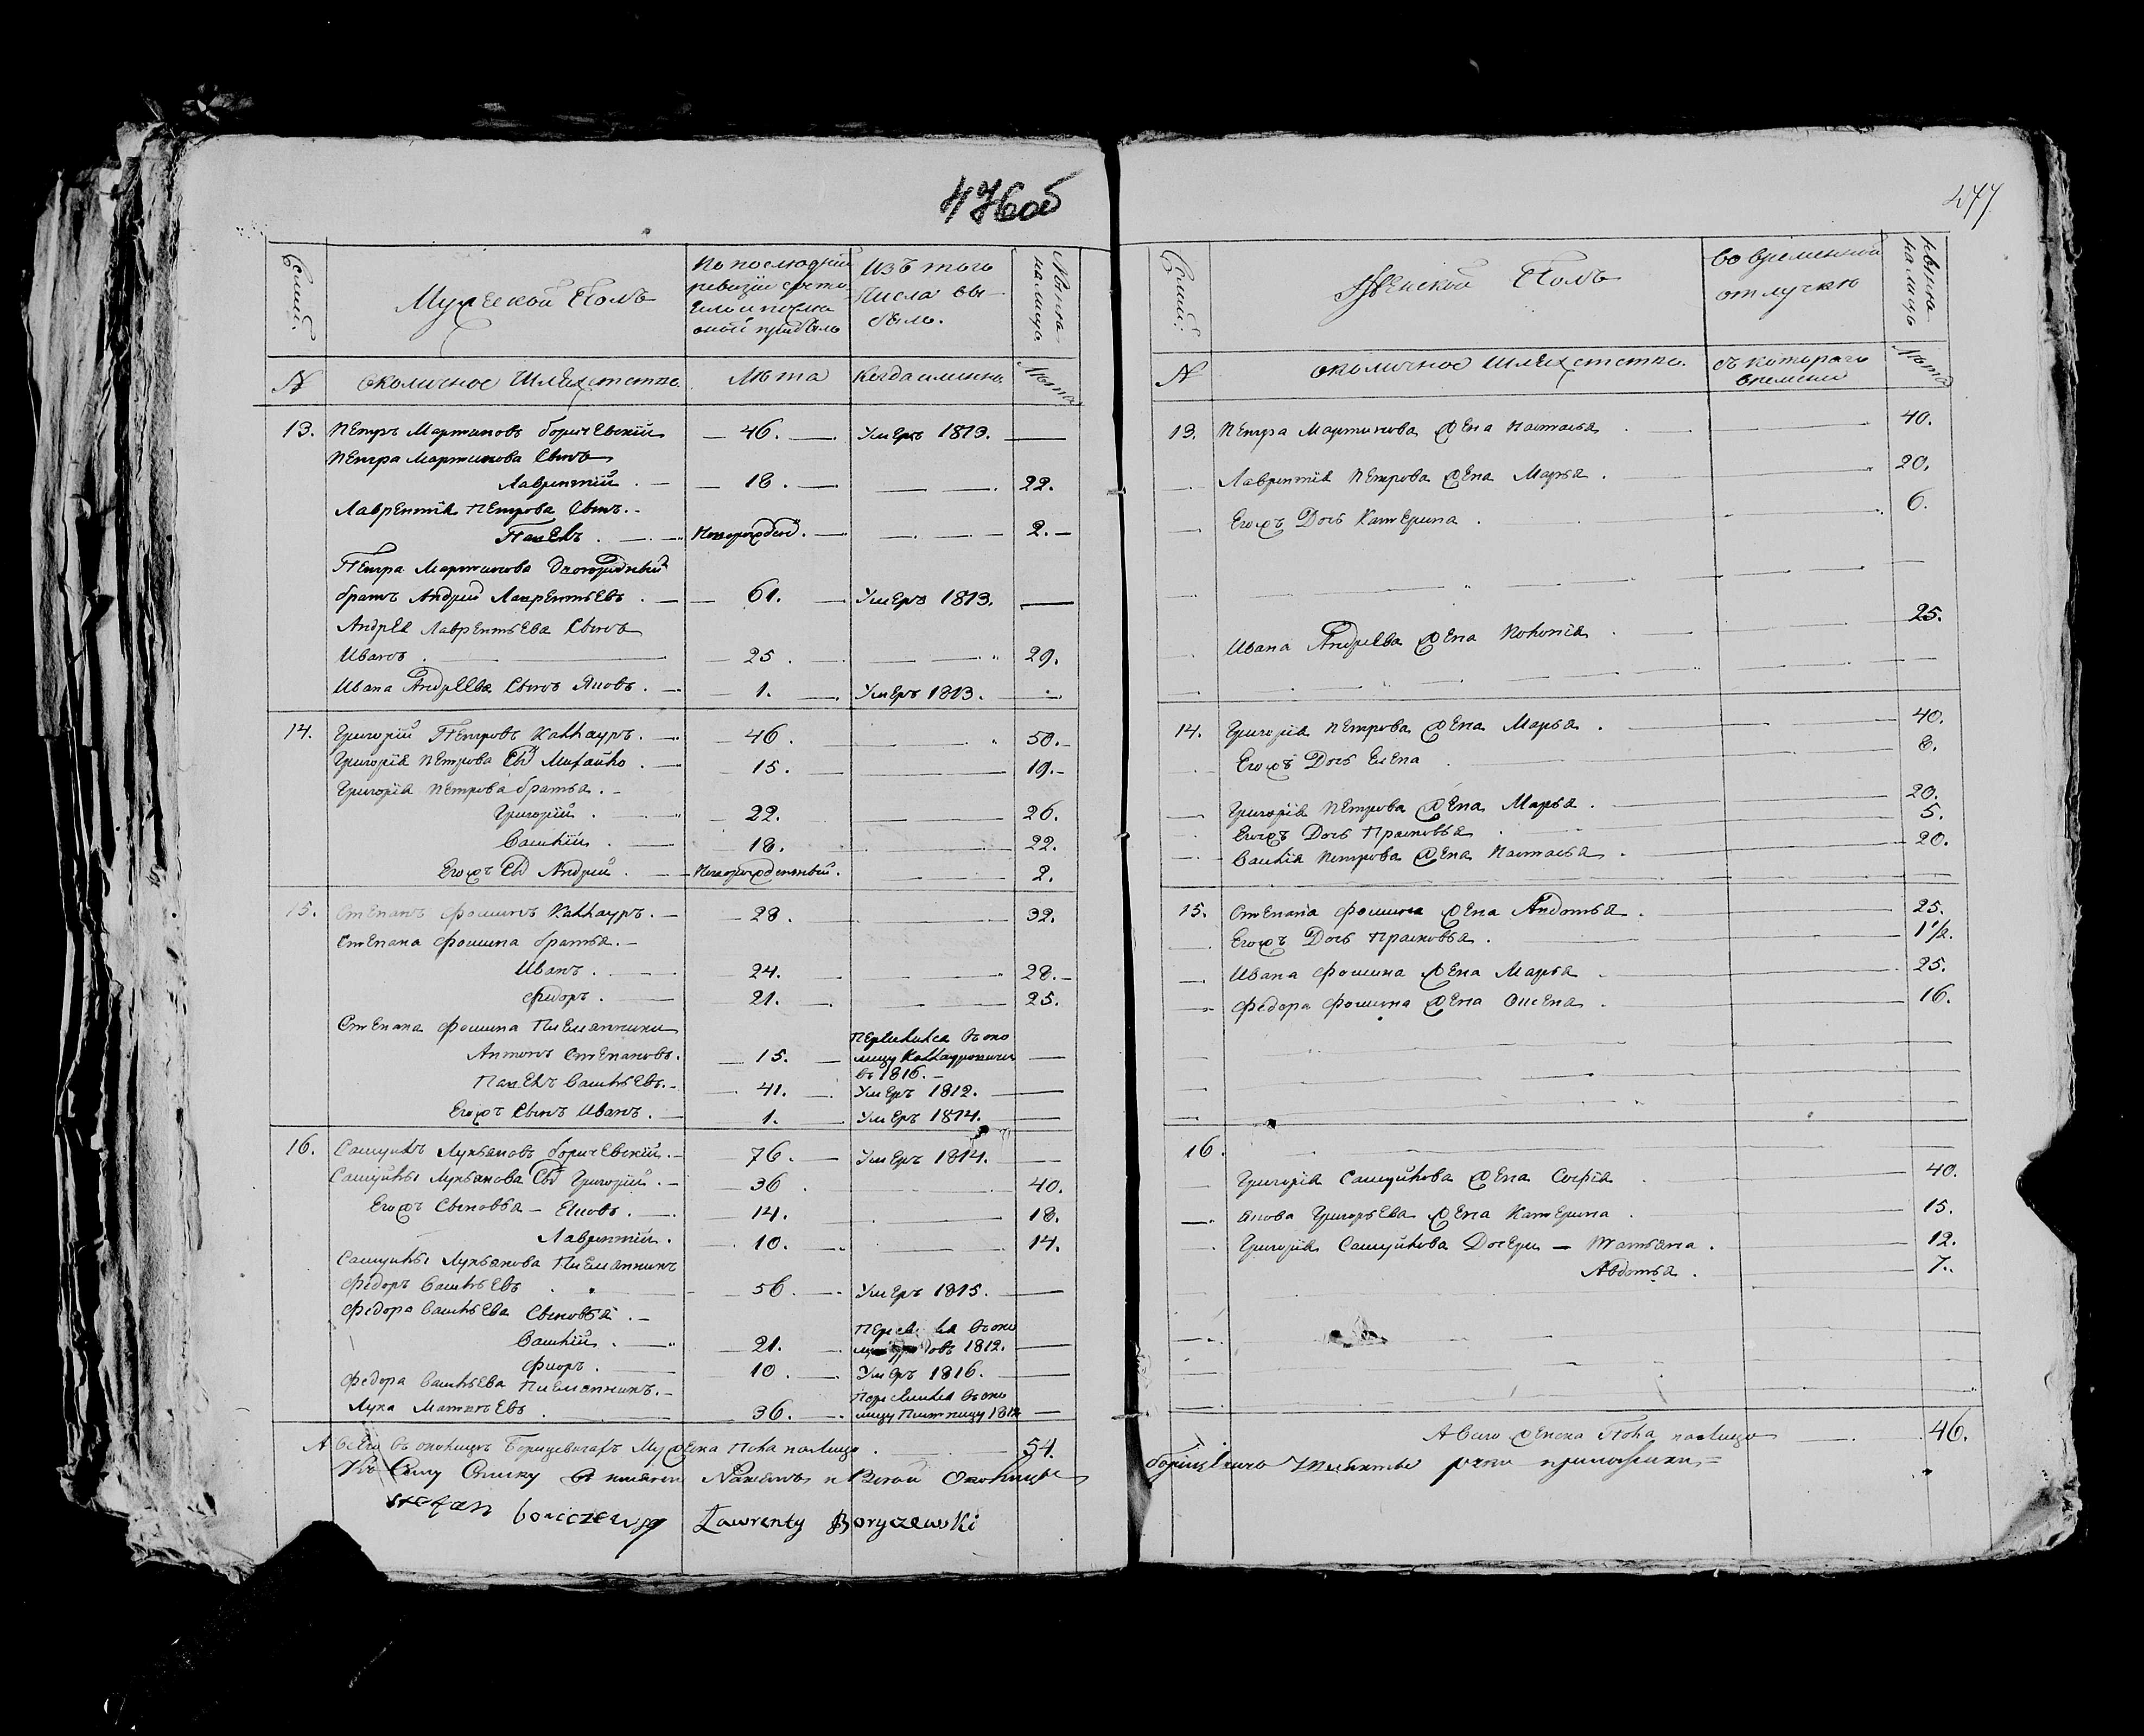 476об
Семьи.
Мужеской Полъ
По последней
ревизии состо
яло и после
оной прибыло
Изъ того
числа вы-
было.
Ныне
на лицо
№
околичное Шляхетство
Лета
Когда именно.
Лета
13. Петръ Мартиновъ Боричевский — 46. — Умеръ 1813. —
Петра Мартинова Сынъ
Лаврентий . — 18. — — 22.
Лаврентия Петрова Сынъ.-
Павелъ . — Новорожден. — — 2.-
Петра Мартинова Двоюродный
братъ Андрей Лаврентьевъ . — 61. — Умеръ 1813. —
Андрея Лаврентьева Сынъ
Иванъ . — 25 . — 29.
Ивана Андреева Сынъ Яковъ . — 1. — Умеръ 1813. —
14. Григорий Петровъ . — 46 . — 50.-
Григория Петрова Сынъ Михайло . — 15. — 19.-
Григория Петрова братья . -
Григорий . — 22. — 26.
Василий . — 18. — 22.
Егожъ Сынъ Андрей . — Новорожденный . — 2.
15. Степанъ Фоминъ . — 28. — 32.
Степана Фомина братья .-
Иванъ . — 24. — 28.-
Федоръ . — 21. — 25.
Степана Фомина Племянники
Антонъ Степановъ. — 15. — Переписался въ око
лицу
въ 1816. -
Павелъ Васильевъ.- — 41. — Умеръ 1812. —
Егожъ Сынъ Иванъ . — 1. — Умеръ 1814. —
16. Самуилъ Лукьяновъ Боричевский .- 76. — Умеръ 1814. —
Самуилы Лукьянова Сынъ Григорий . - 36 . — 40.
Егожъ Сыновья — Яковъ . — 14. — 18.
Лаврентий . 10. — 14.
Самуилы Лукьянова Племянникъ
Федоръ Васильевъ — 56 . — Умеръ 1815. —
Федора Васильева Сыновья . -
Василий . — 21. — въ око
1812. —
10 . — Умеръ 1816. —
Федора Васильева Племянникъ.-
Лука Матвеевъ . — 36. — Переписался въ око
лицу 1812 —
А всего въ околице Боричевичахъ Мужеска Пола налицо . — 54.
Къ Сему Списку
Stefan Boriczewsky Ławrenty Boryczewski
477
Семьи.
Женской Полъ
Во временной
отлучке
Ныне
на лицо
№
околичное Шляхетство.
съ которого
времени
Лета
13. Петра Мартинова Жена Настасья . — 40.
Лаврентия Петрова Жена Марья . — 20.
Егожъ Дочь Катерина . — 6.
Ивана Андреева Жена — 25.
14. Григория Петрова Жена Марья . — 40.
Егожъ Дочь Елена . — 8.
Григория Петрова Жена Марья . — 20.
Егожъ Дочь Прасковья . — 5.
Василия Петрова Жена Настасья . — 20.
15. Степана Фомина Жена Авдотья . — 25.
Егожъ Дочь Прасковья . — 1 1/2.
Ивана Фомина Жена Марья . — 25.
Федора Фомина Жена Оксена . — 16.
16.
Григория Самуйлова Жена София . — 40.
Якова Григорьева Жена Катерина . — 15.
Григория Самуйлова Дочери — Татьяна . — 12.
Авдотья . — 7.
А всего Женска Пола налицо — 46.
руки приложили